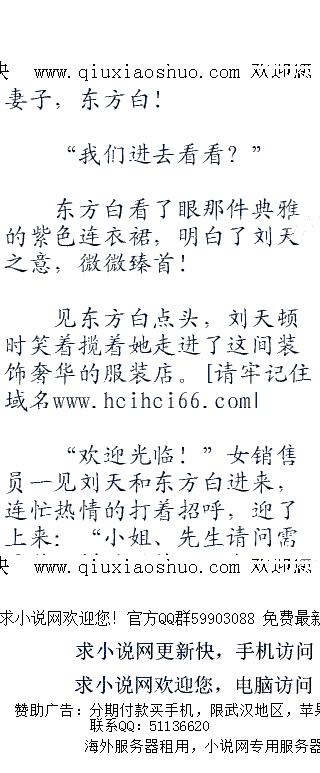 快 www.qiuxiaoshuo.com 欢迎您
妻子，东方白！
“我们进去看看？”
东方白看了眼那件典雅
的紫色连衣裙，明白了刘天
之意，微微臻首！
见东方白点头，刘天顿
时笑着揽着她走进了这间装
饰奢华的服装店。[请牢记住
域名www.hcihci66.com|
“欢迎光临！”女销售
员一见刘天和东方白进来，
连忙热情的打着招呼，迎了
上来：“小姐、先生请问需
快 www.qiuxiaoshuo.com 欢迎您
求小说网欢迎您! 官方QQ群59903088 免费最新
求小说网更新快，手机访问
求小说网欢迎您，电脑访问
赞助广告：分期付款买手机，限武汉地区，苹果
联系QQ：51136620
海外服务器租用，小说网专用服务器